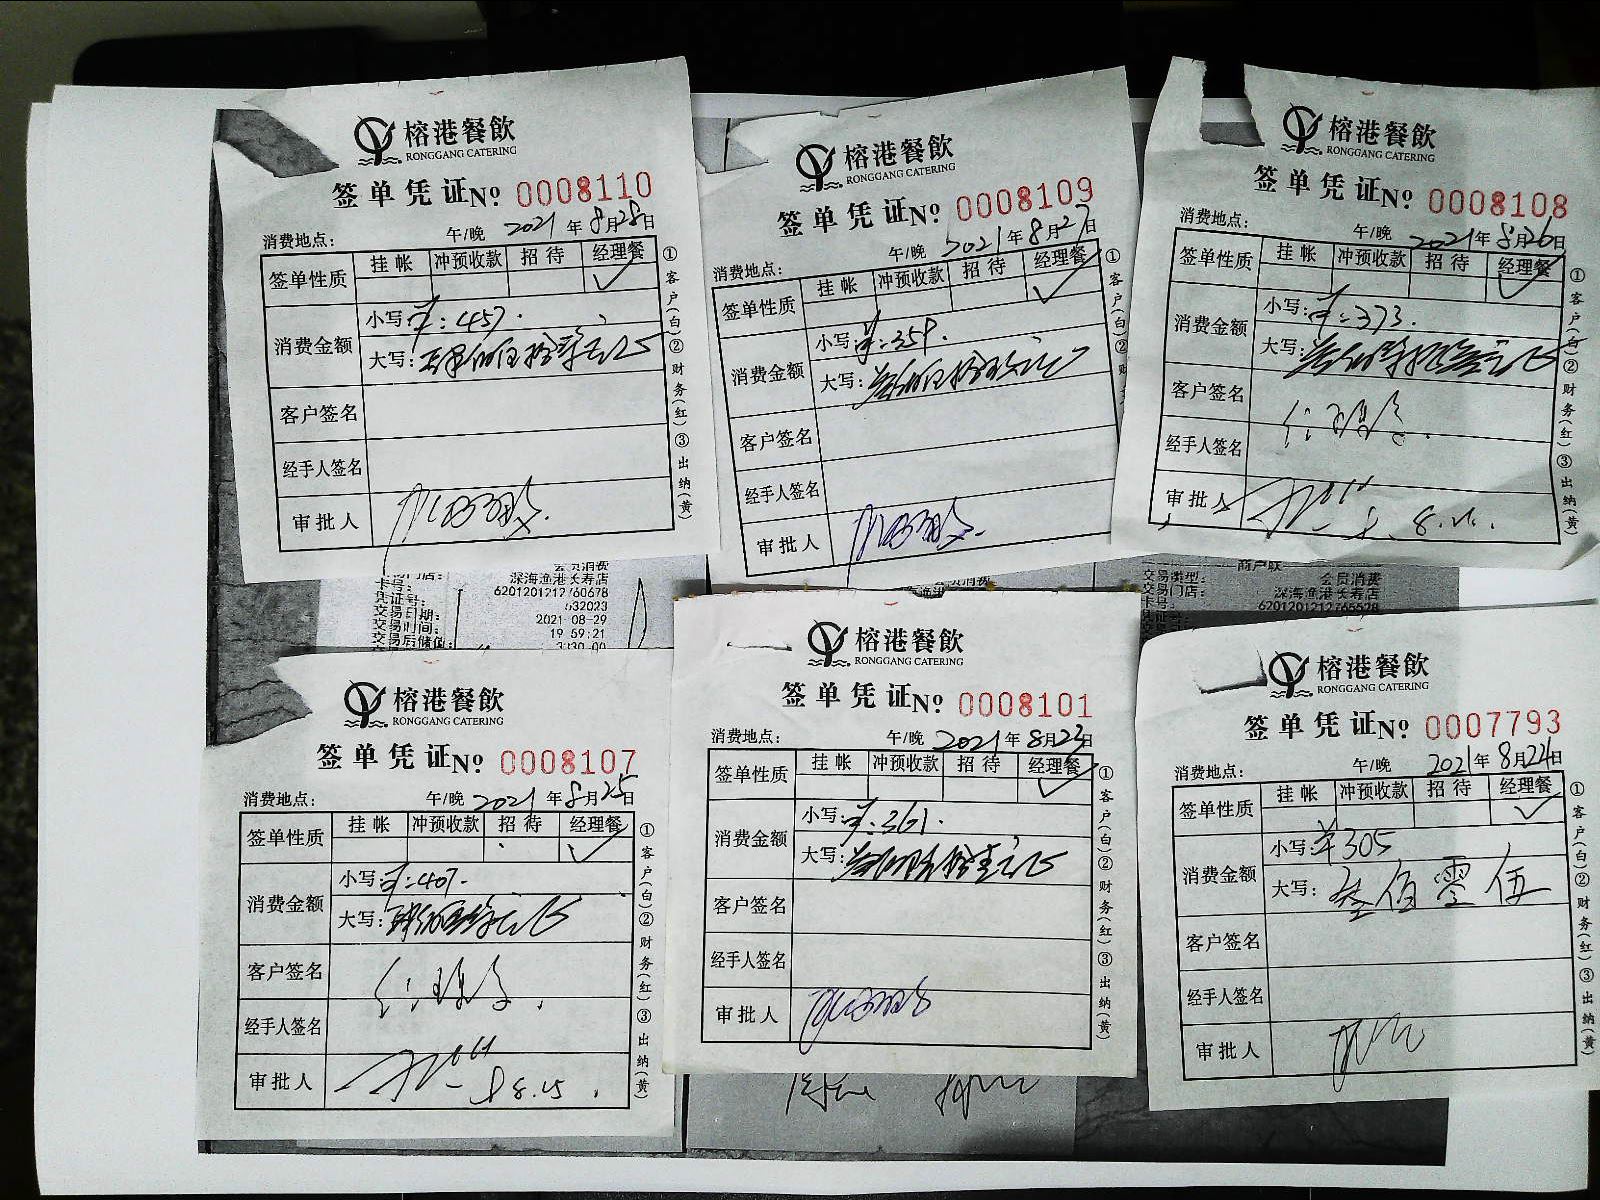 榕港餐飲
RONGGANG CATERING
签单凭证№ 0008110
消费地点： 午/晚 2021年8月28日
签单性质 挂帐 冲预收款 招待 经理餐
消费金额
小写：¥:457.
大写：
客户签名
经手人签名
审批人
①客户(白)②财务(红)③出纳(黄)
榕港餐飲
RONGGANG CATERING
签单凭证№ 0008109
午/晚 2021年8月27日
消费地点：
签单性质 挂帐 冲预收款 招待 经理餐
消费金额
小写：¥:359.
大写：
客户签名
经手人签名
审批人
①客户(白)②
榕港餐飲
RONGGANG CATERING
签单凭证№ 0008108
消费地点： 午/晚 2021年8月26日
签单性质 挂帐 冲预收款 招待 经理餐
消费金额
小写：¥:373.
大写：
客户签名
经手人签名
审批人 8.26.
①客户(白)②财务(红)③出纳(黄)
会员消费
深海渔港长寿店
6201201212760678
凭证号： 632023
交易日期： 2021-08-29
交易时间： 19:59:21
交易后储值： 3330.00
商户联
交易类型： 会员消费
交易门店： 深海渔港长寿店
卡号：
榕港餐飲
RONGGANG CATERING
签单凭证№ 0008107
消费地点： 午/晚 2021年8月25日
签单性质 挂帐 冲预收款 招待 经理餐
消费金额
小写：¥:407.
大写：
客户签名
经手人签名
审批人 8.25.
①客户(白)②财务(红)③出纳(黄)
榕港餐飲
RONGGANG CATERING
签单凭证№ 0008101
消费地点： 午/晚 2021年8月23日
签单性质 挂帐 冲预收款 招待 经理餐
消费金额
小写：¥:361.
大写：
客户签名
经手人签名
审批人
①客户(白)②财务(红)③出纳(黄)
榕港餐飲
RONGGANG CATERING
签单凭证№ 0007793
消费地点： 午/晚 2021年8月24日
签单性质 挂帐 冲预收款 招待 经理餐
消费金额
小写：¥305
大写：叁佰零伍
客户签名
经手人签名
审批人
①客户(白)②财务(红)③出纳(黄)